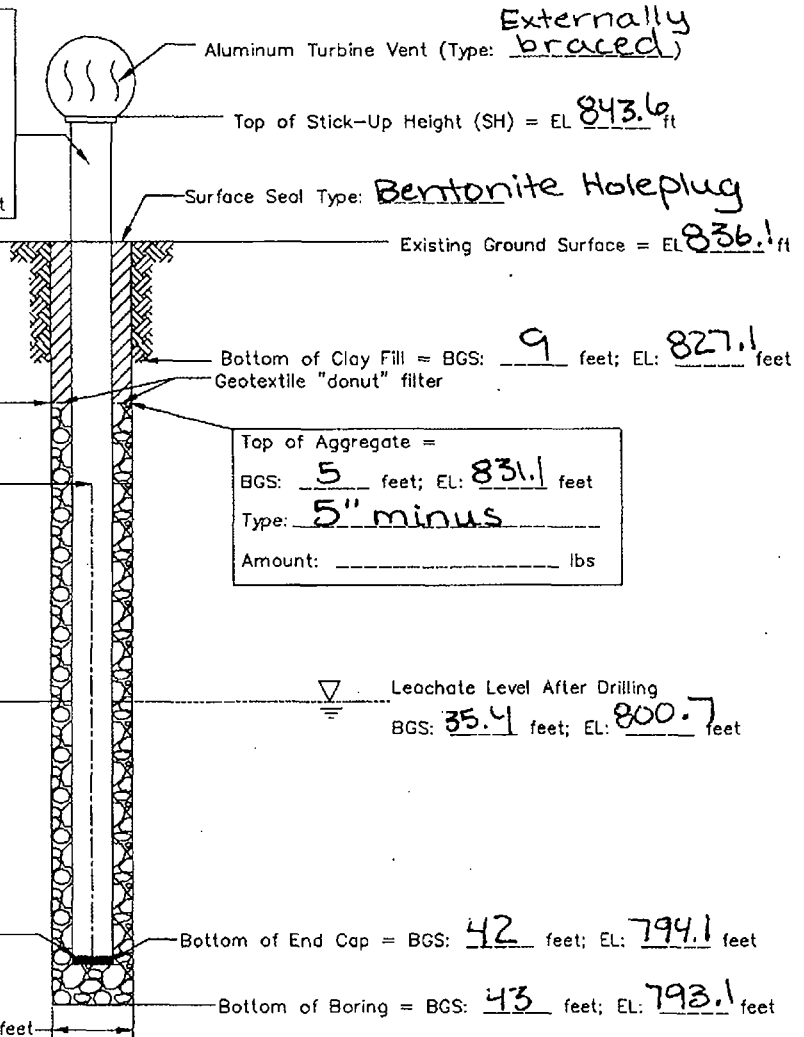 Externally
Aluminum Turbine Vent (Type: braced)
Top of Stick-Up Height (SH) = EL 843.6 ft
t
Surface Seal Type: Bentonite Holeplug
Existing Ground Surface = EL 836.1 ft
Bottom of Clay Fill = BGS: 9 feet; EL: 827.1 feet
Geotextile "donut" filter
Top of Aggregate =
BGS: 5 feet; EL: 831.1 feet
Type: 5" minus
Amount: ____________ lbs
Leachate Level After Drilling
BGS: 35.4 feet; EL: 800.7 feet
Bottom of End Cap = BGS: 42 feet; EL: 794.1 feet
Bottom of Boring = BGS: 43 feet; EL: 793.1 feet
feet